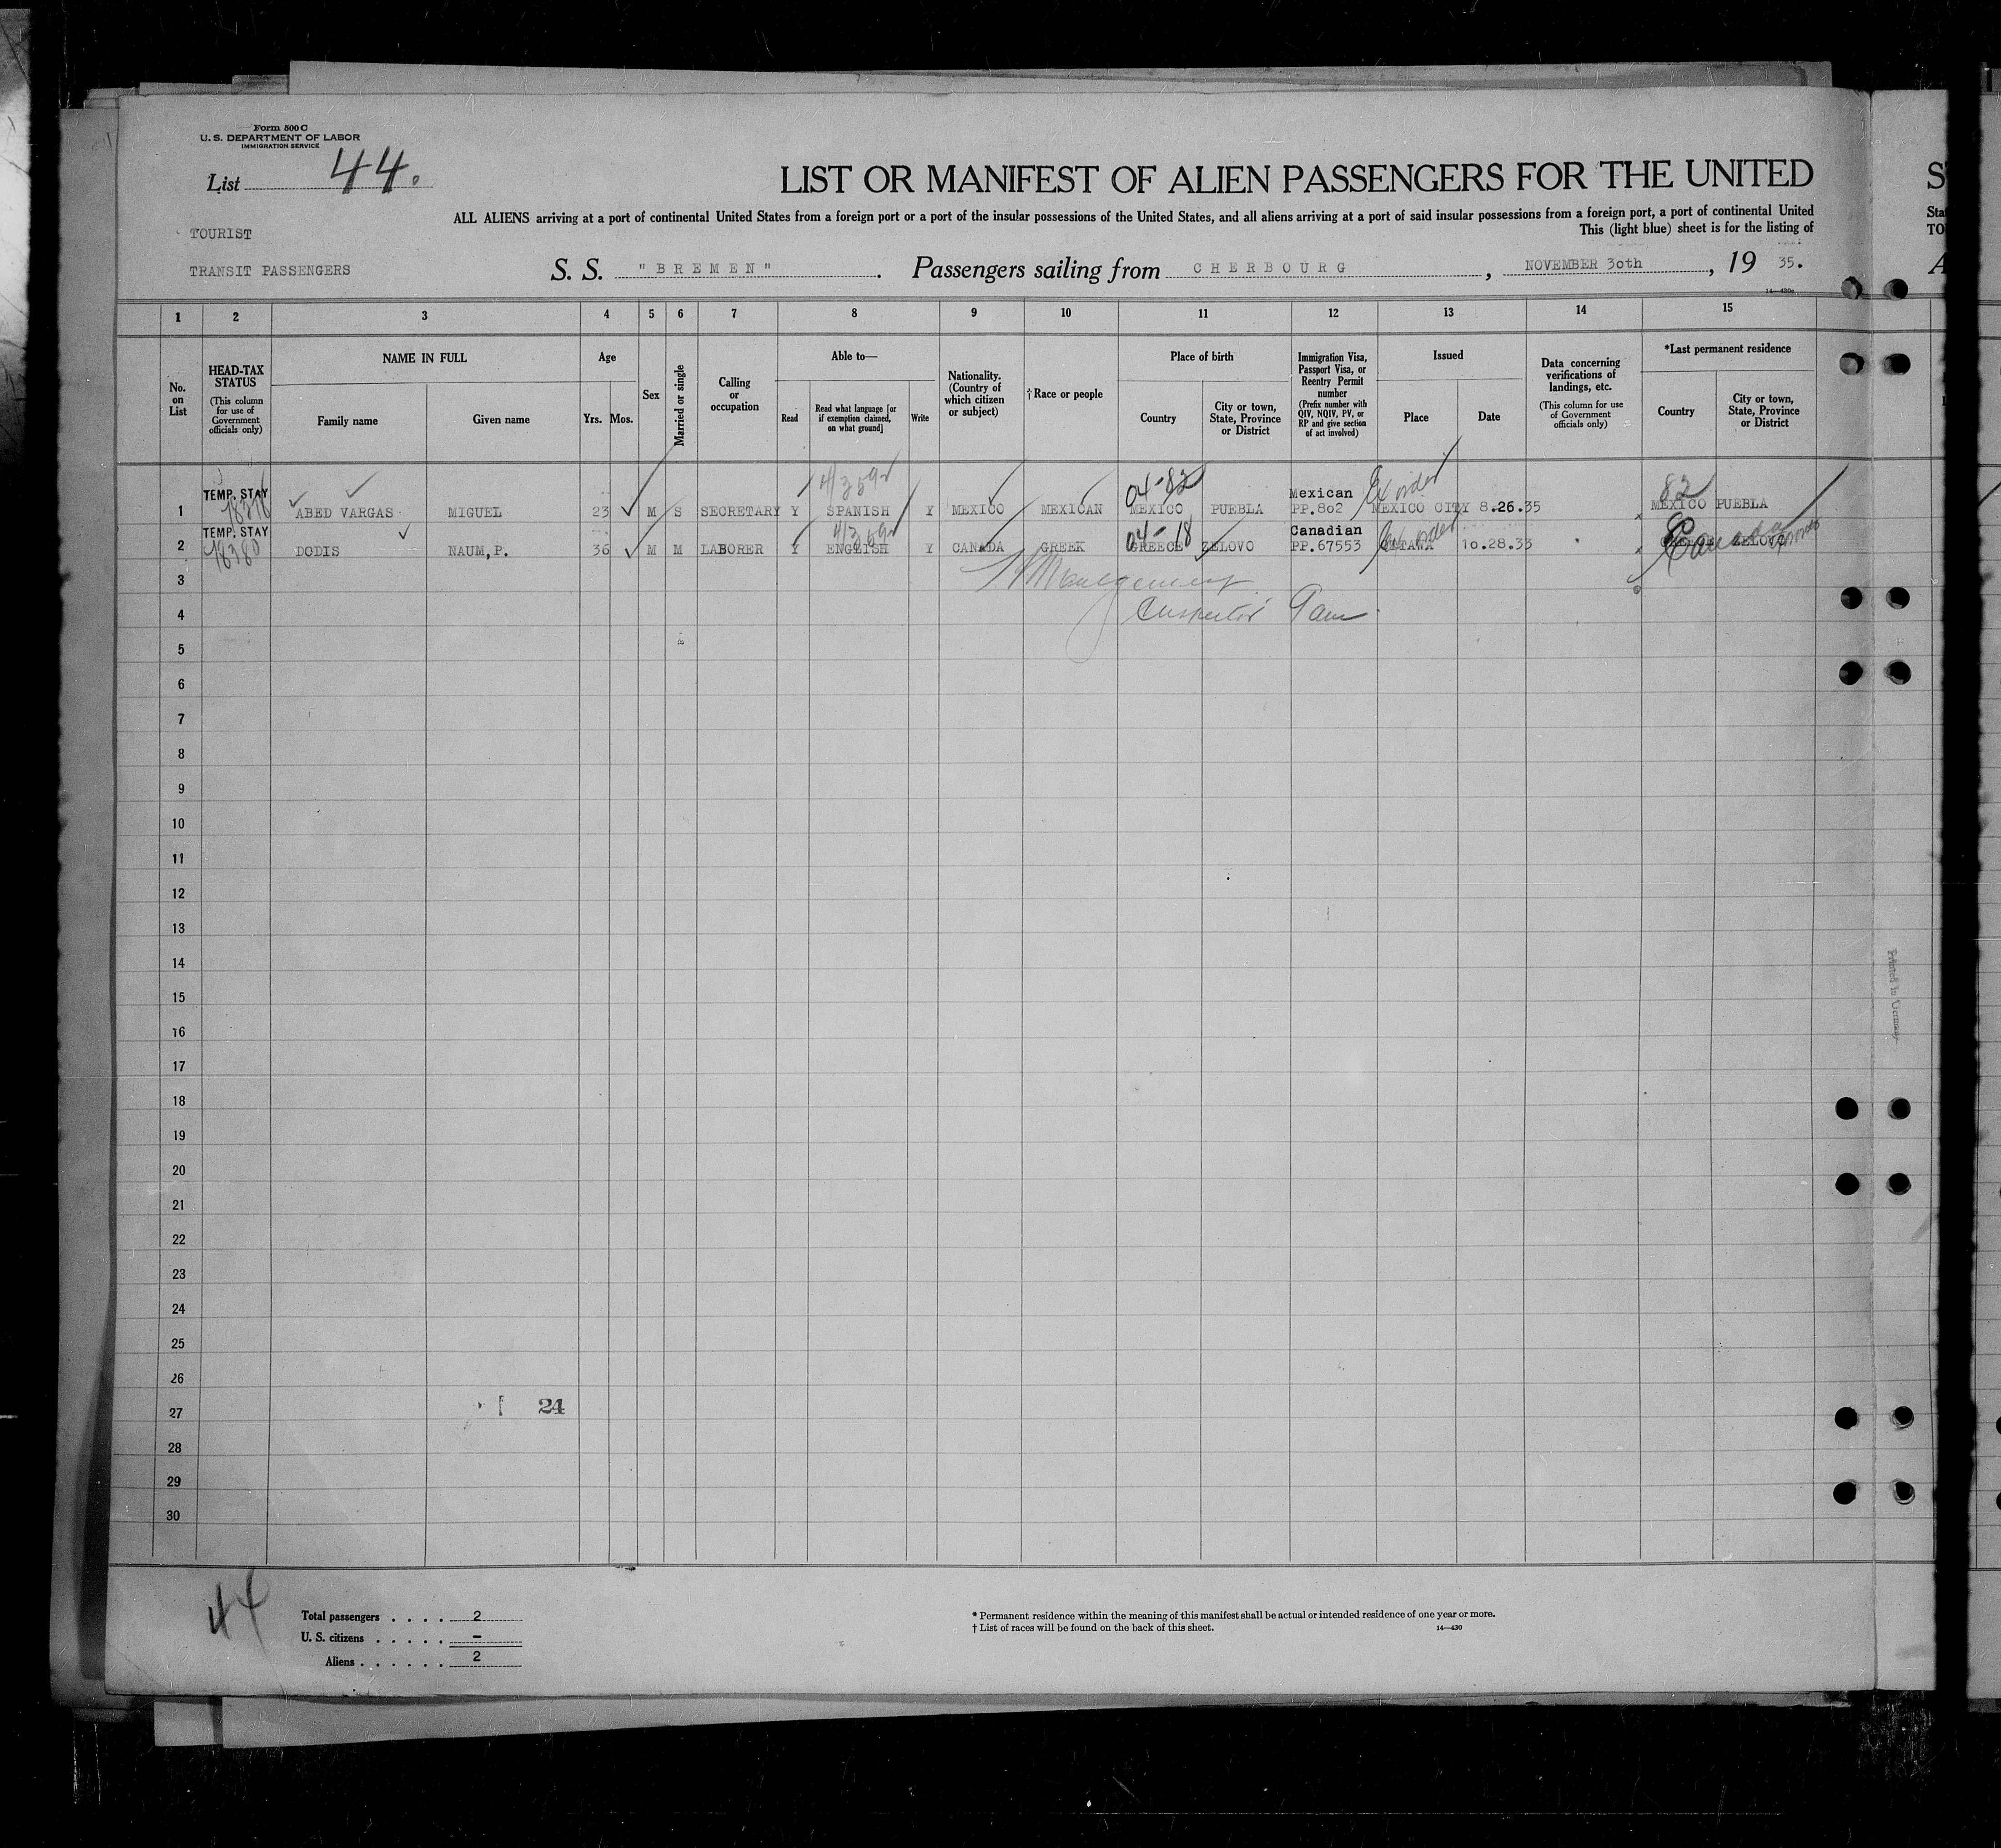 Form 500 C
U. S. DEPARTMENT OF LABOR
IMMIGRATION SERVICE
List 44.
LIST OR MANIFEST OF ALIEN PASSENGERS FOR THE UNITED
ALL ALIENS arriving at a port of continental United States from a foreign port or a port of the insular possessions of the United States, and all aliens arriving at a port of said insular possessions from a foreign port, a port of continental United
This (light blue) sheet is for the listing of
TOURIST
TRANSIT PASSENGERS
S. S. "BREMEN". Passengers sailing from CHERBOURG, NOVEMBER 30th, 19 35.
1 2 3 4 5 6 7 8 9 10 11 12 13 14 15
No. on List
HEAD-TAX STATUS (This column for use of Government officials only)
NAME IN FULL
Family name
Given name
Age
Yrs. Mos.
Sex
Married or single
Calling or occupation
Able to—
Read
Read what language [or if exemption claimed, on what ground]
Write
Nationality. (Country of which citizen or subject)
† Race or people
Place of birth
Country
City or town, State, Province or District
Immigration Visa, Passport Visa, or Reentry Permit number (Prefix number with QIV, NQIV, PV, or RP and give section of act involved)
Issued
Place
Date
Data concerning verifications of landings, etc. (This column for use of Government officials only)
*Last permanent residence
Country
City or town, State, Province or District
04-82 82
1 TEMP. STAY ABED VARGAS MIGUEL 23 M S SECRETARY Y SPANISH Y MEXICO MEXICAN MEXICO PUEBLA Mexican PP.802 MEXICO CITY 8.26.35 MEXICO PUEBLA
04-18 Canada
2 TEMP. STAY DODIS NAUM,P. 36 M M LABORER Y ENGLISH Y CANADA GREEK GREECE ZELOVO Canadian PP.67553 OTTAWA 10.28.33 ZELOVO
3
4 Inspector
5
6
7
8
9
10
11
12
13
14
15
16
17
18
19
20
21
22
23
24
25
26
27 24
28
29
30
Printed in Germany
44
Total passengers . . . . 2
U. S. citizens . . . . . –
Aliens . . . . . . 2
* Permanent residence within the meaning of this manifest shall be actual or intended residence of one year or more.
† List of races will be found on the back of this sheet.
14—430